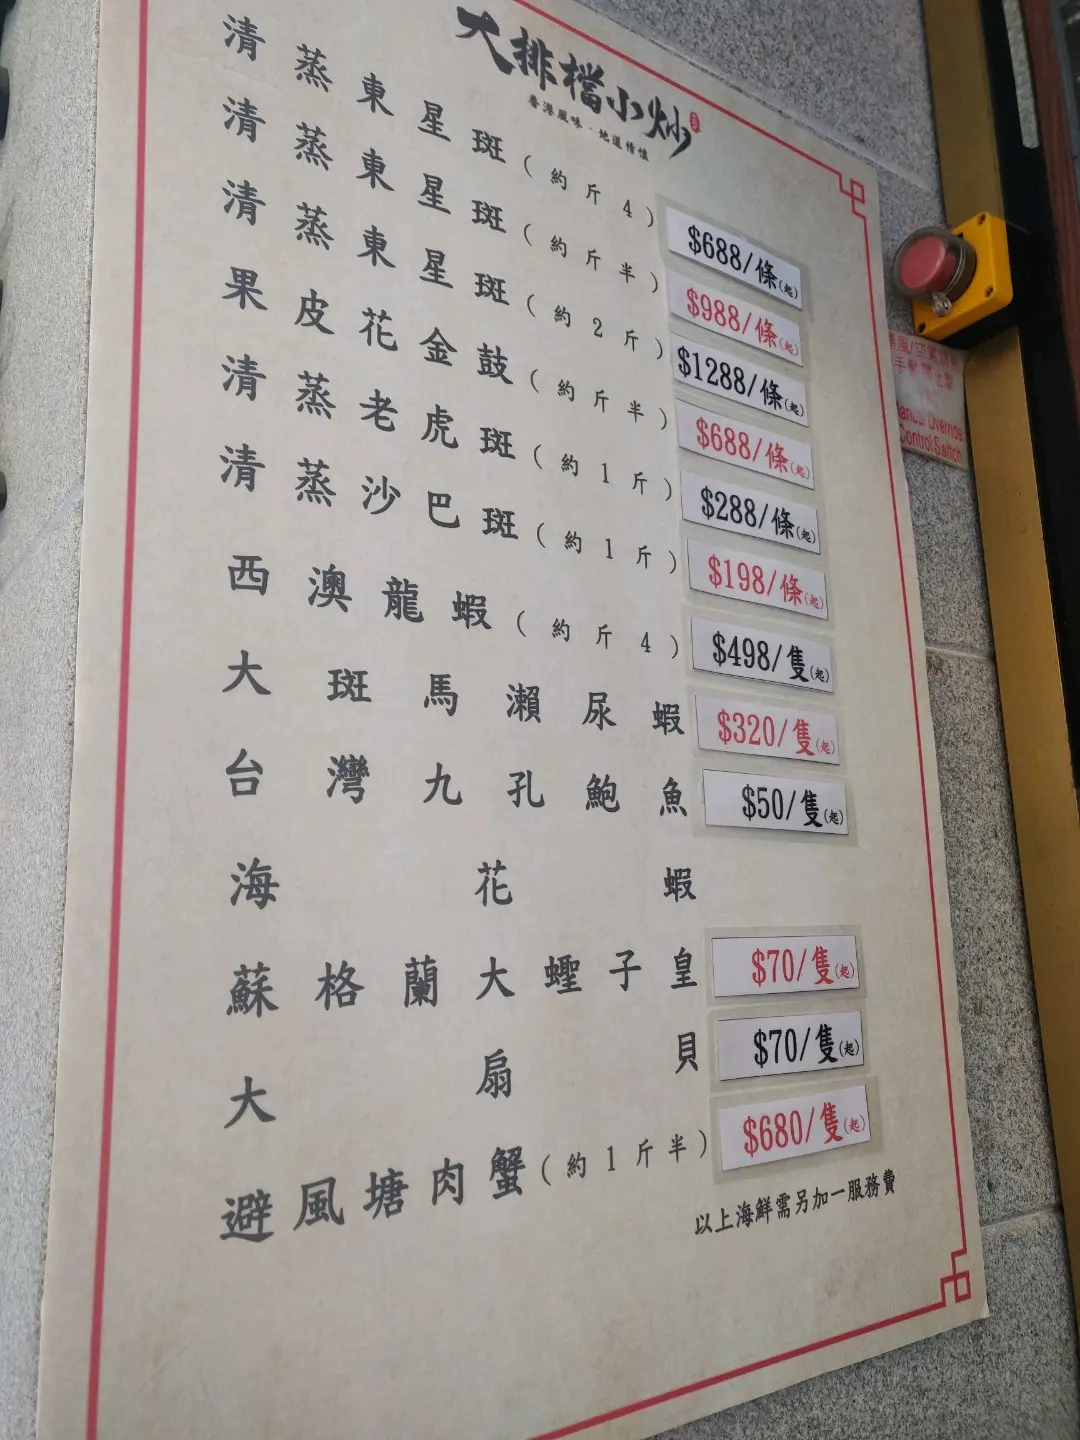 大排檔小炒
香港風味·地道情懷
清蒸東星斑(約斤4) $688/條(起)
清蒸東星斑(約斤半) $988/條(起)
清蒸東星斑(約2斤) $1288/條(起)
果皮花金鼓(約斤半) $688/條(起)
清蒸老虎斑(約1斤) $288/條(起)
清蒸沙巴斑(約1斤) $198/條(起)
西澳龍蝦(約斤4) $498/隻(起)
大斑馬瀨尿蝦 $320/隻(起)
台灣九孔鮑魚 $50/隻(起)
海花蝦
蘇格蘭大蟶子皇 $70/隻(起)
大扇貝 $70/隻(起)
避風塘肉蟹(約1斤半) $680/隻(起)
以上海鮮需另加一服務費
Override
Control Switch